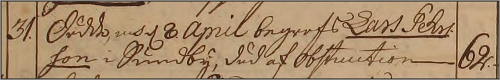 31. d 8 April begrofs Lars Pehrs
son i Sundby, död af obstruction 62.